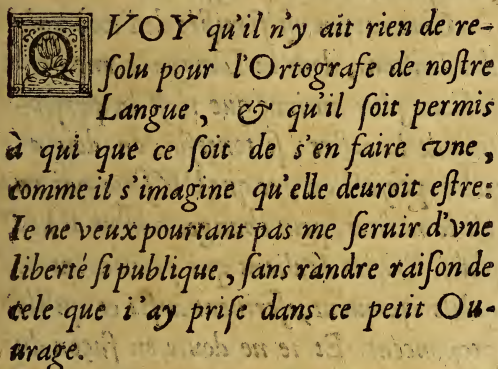 QVOY qu'il n'y ait rien de re-
ſolu pour l'Ortografe de noſtre
Langue, & qu'il ſoit permis
à qui que ce ſoit de s'en faire vne,
comme il s'imagine qu'elle deuroit eſtre:
Ie ne veux pourtant pas me ſeruir d'vne
liberté ſi publique, ſans ràndre raiſon de
cele que i'ay priſe dans ce petit Ou-
urage.